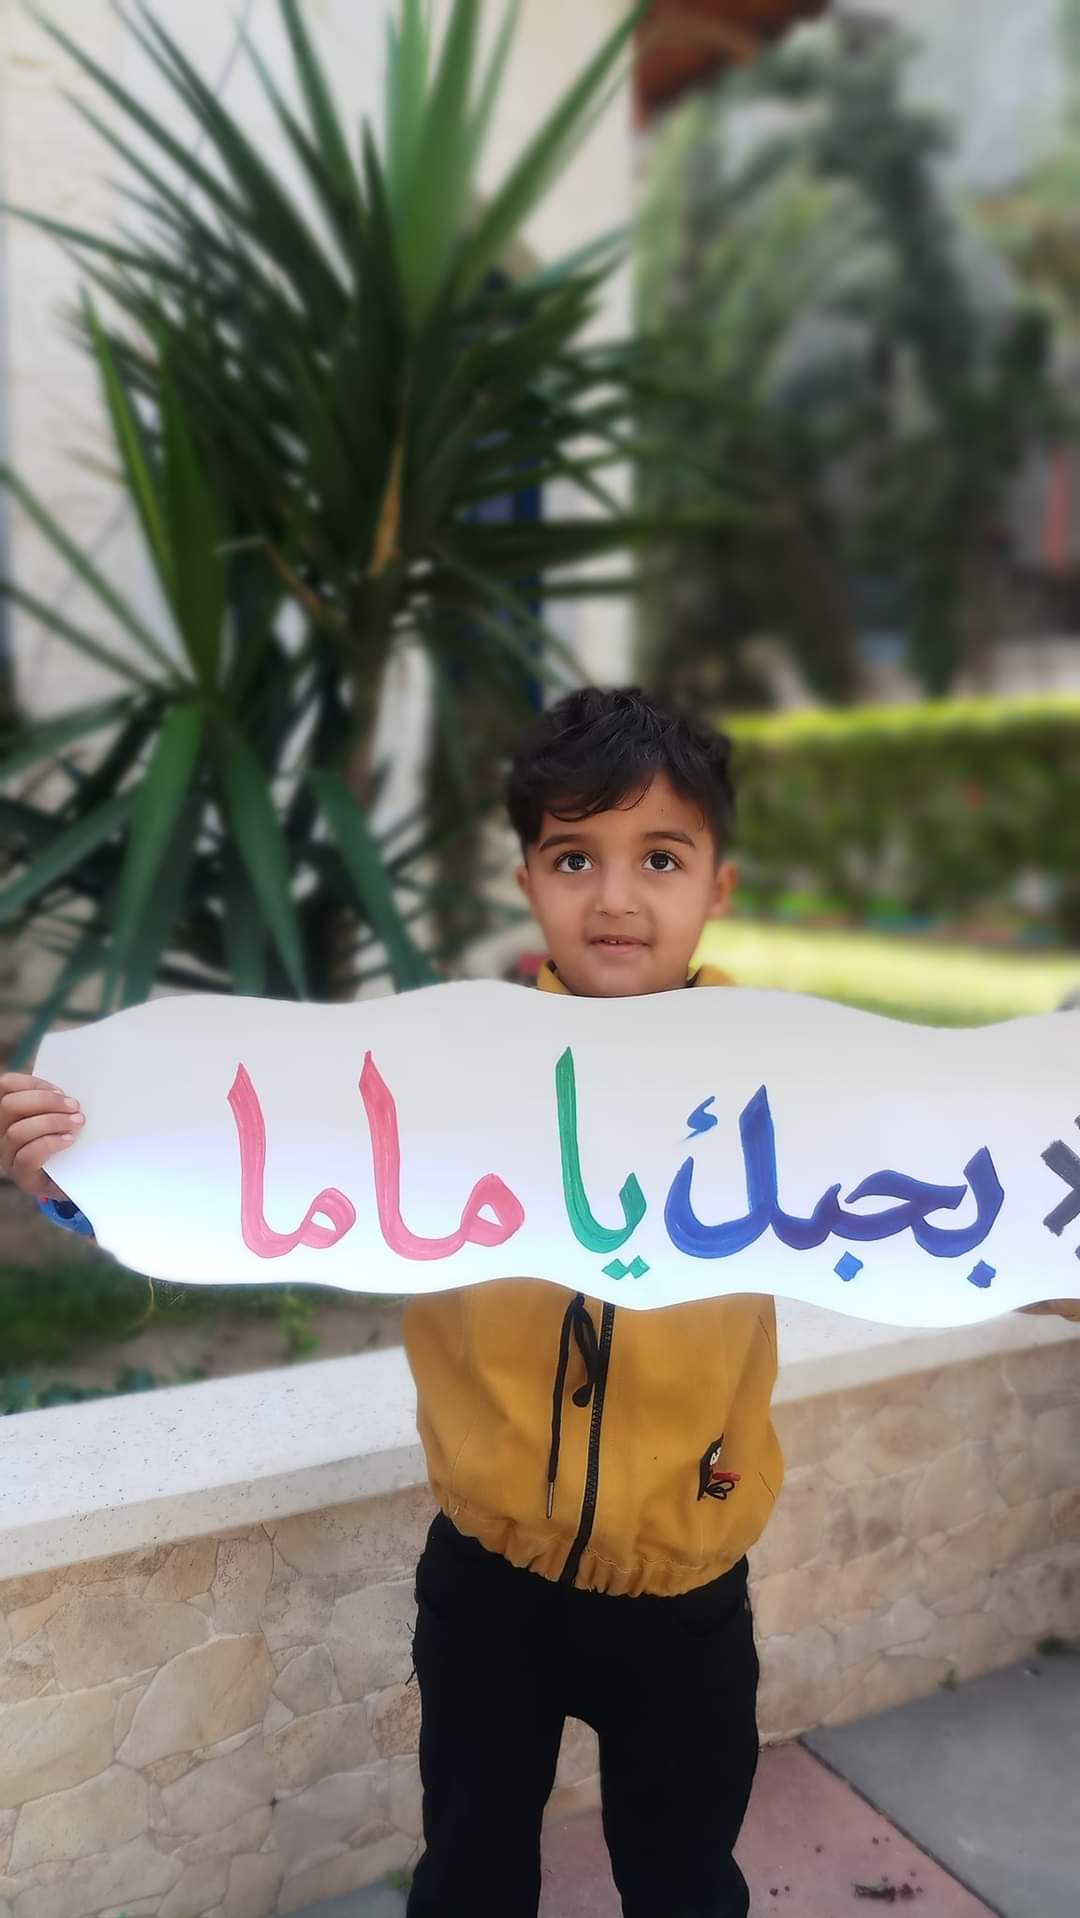 بحبك يا ماما